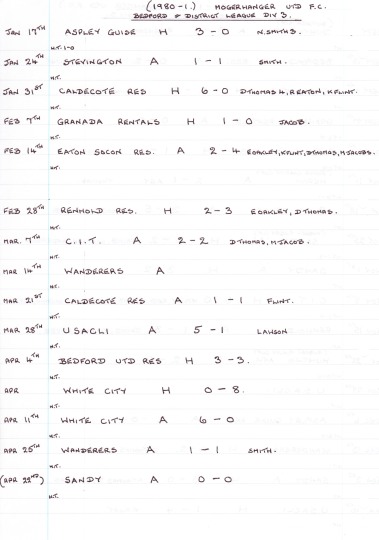 (1980-1.) MOGERHANGER UTD F.C.
BEDFORD & DISTRICT LEAGUE DIV 3.
JAN 17TH ASPLEY GUISE H 3 - 0 N.SMITH 3
H.T. 1-0
JAN 24TH STEVINGTON A 1 - 1 SMITH.
H.T.
JAN 31ST CALDECOTE RES H 6 - 0 D.THOMAS 4, R EATON, K FLINT.
H.T.
FEB 7TH GRANADA RENTALS H 1 - 0 JACOB.
H.T.
FEB 14TH EATON SOCON RES. A 2 - 4 E OAKLEY, K FLINT, D THOMAS, M JACOBS.
H.T.
FEB 28TH RENHOLD RES. H 2 - 3 E OAKLEY, D THOMAS.
H.T.
MAR. 7TH C.I.T. A 2 - 2 D THOMAS, M JACOB.
H.T.
MAR 14TH WANDERERS A
H.T.
MAR 21ST CALDECOTE RES A 1 - 1 FLINT.
H.T.
MAR 28TH USACLI A 5 - 1 LAWSON
H.T.
APR 4TH BEDFORD UTD RES H 3 - 3.
H.T.
APR WHITE CITY H 0 - 8.
H.T.
APR 11TH WHITE CITY A 6 - 0
H.T.
APR 25TH WANDERERS A 1 - 1 SMITH.
H.T.
(APR 22ND) SANDY A 0 - 0
H.T.